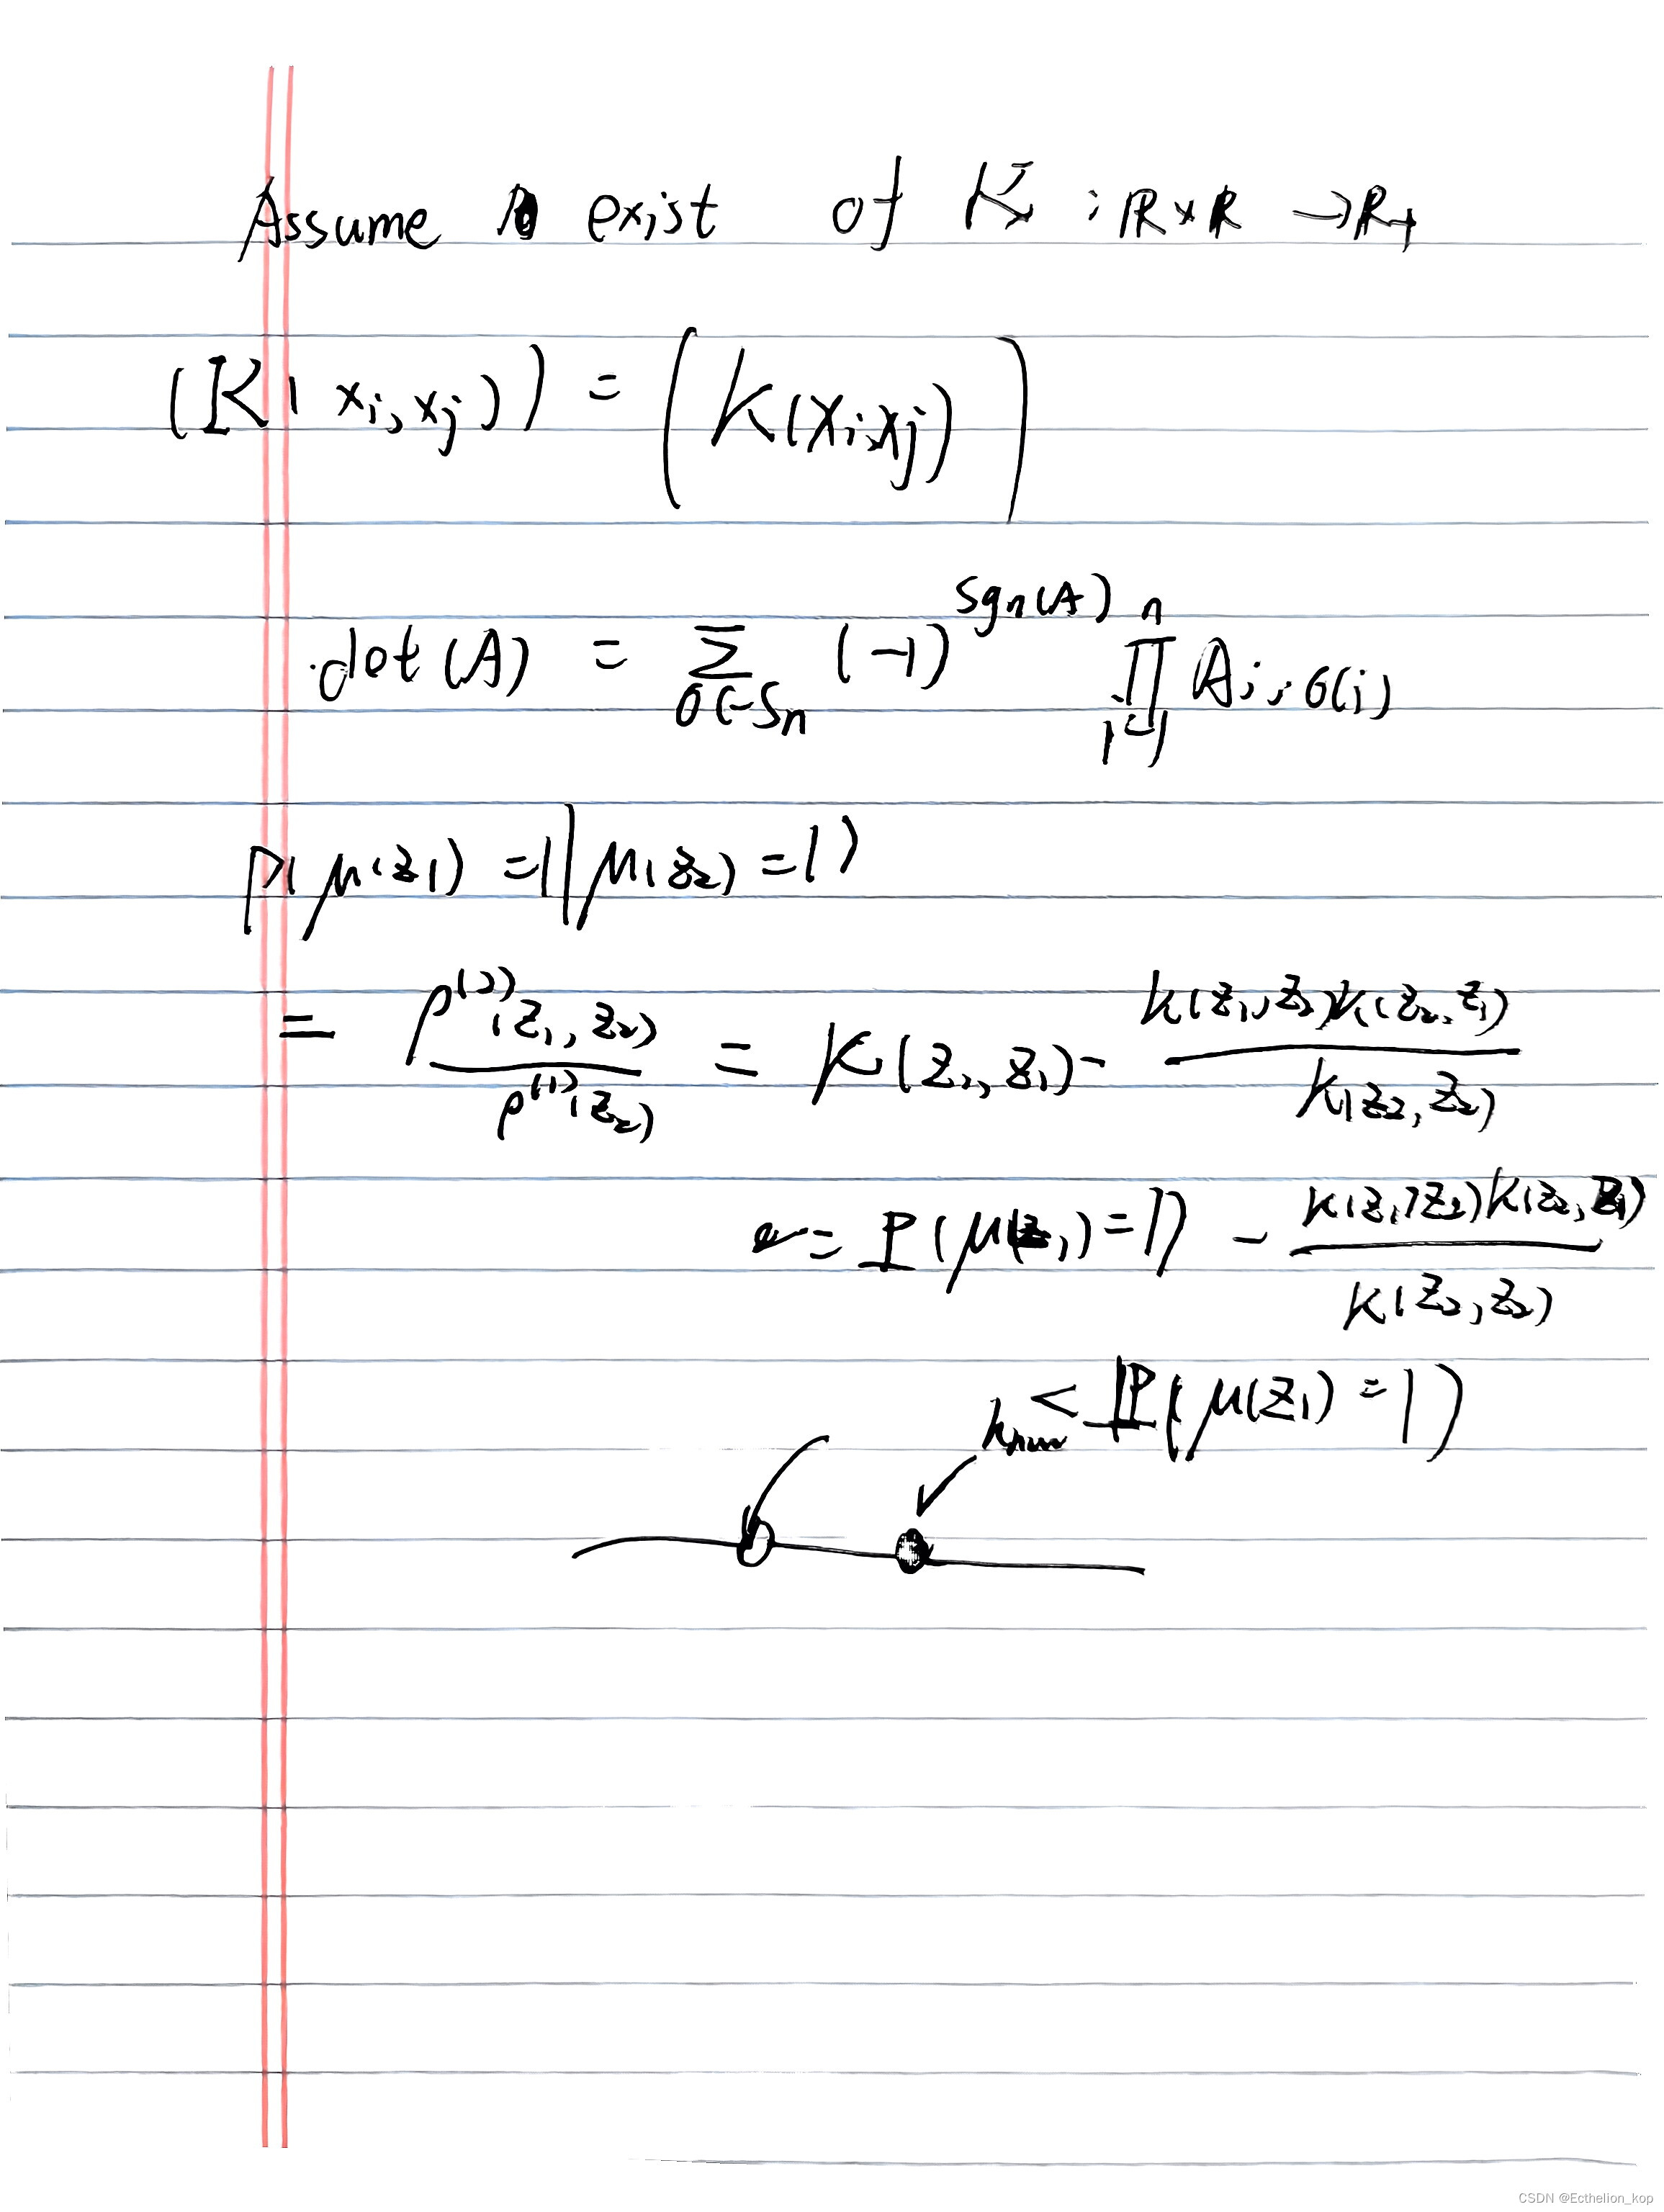 Assume exist of K : ℝ×ℝ → ℝ+
(K(xi,xj)) = (K(xi,xj))
det(A) = Σ_{σ∈Sn} (-1)^{sgn(A)} ∏_{i=1}^{n} A_{i,σ(i)}
P(μ(z1)=1|μ(z2)=1)
= ρ^{(2)}(z1,z2) / ρ^{(1)}(z2) = K(z1,z1) - K(z1,z2)K(z2,z1) / K(z2,z2)
= ℙ(μ(z1)=1) - K(z1,z2)K(z2,z1) / K(z2,z2)
< ℙ(μ(z1)=1)
CSDN @Ecthelion_kop